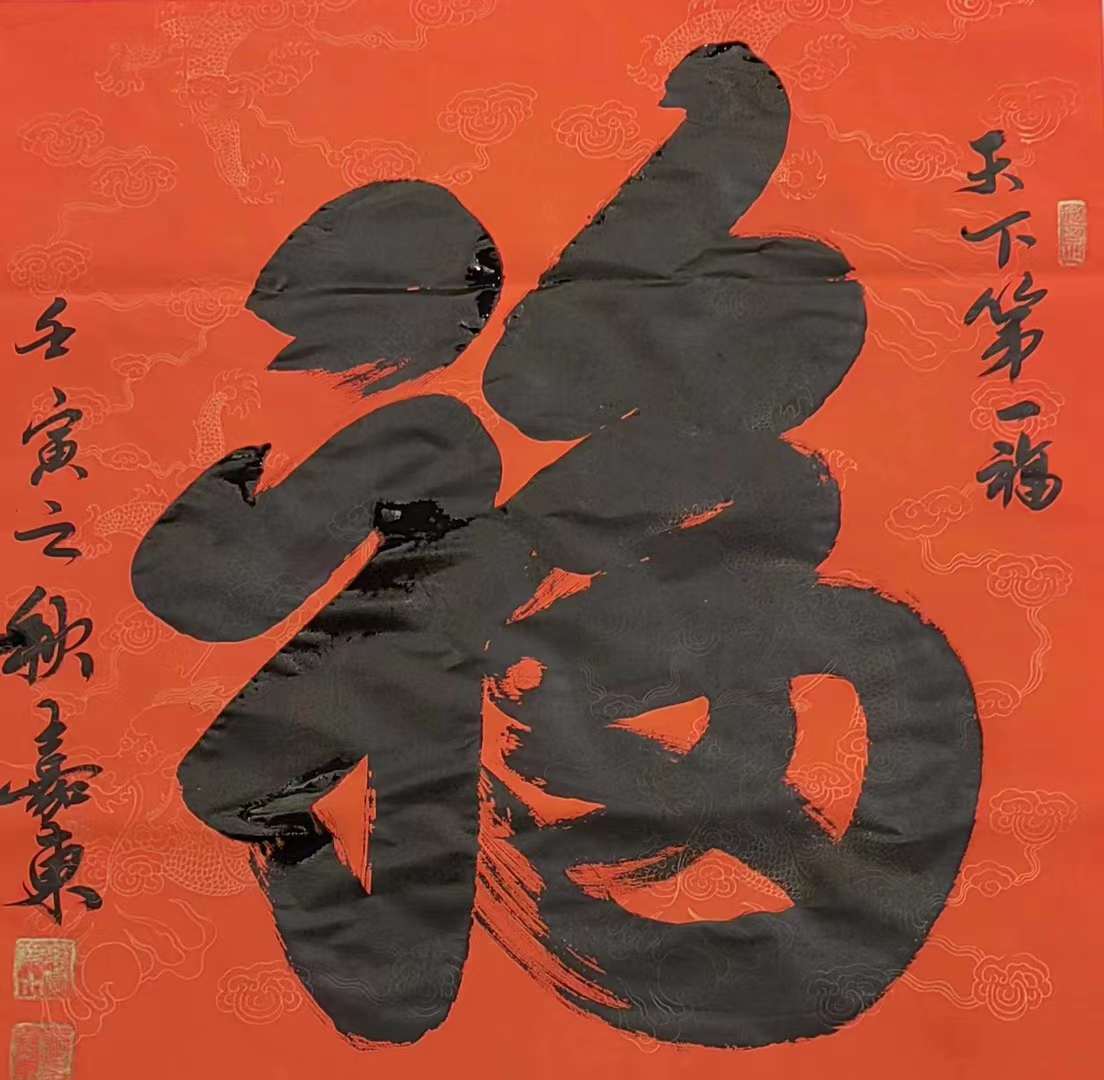 天下第一福
福
壬寅之秋嘉東